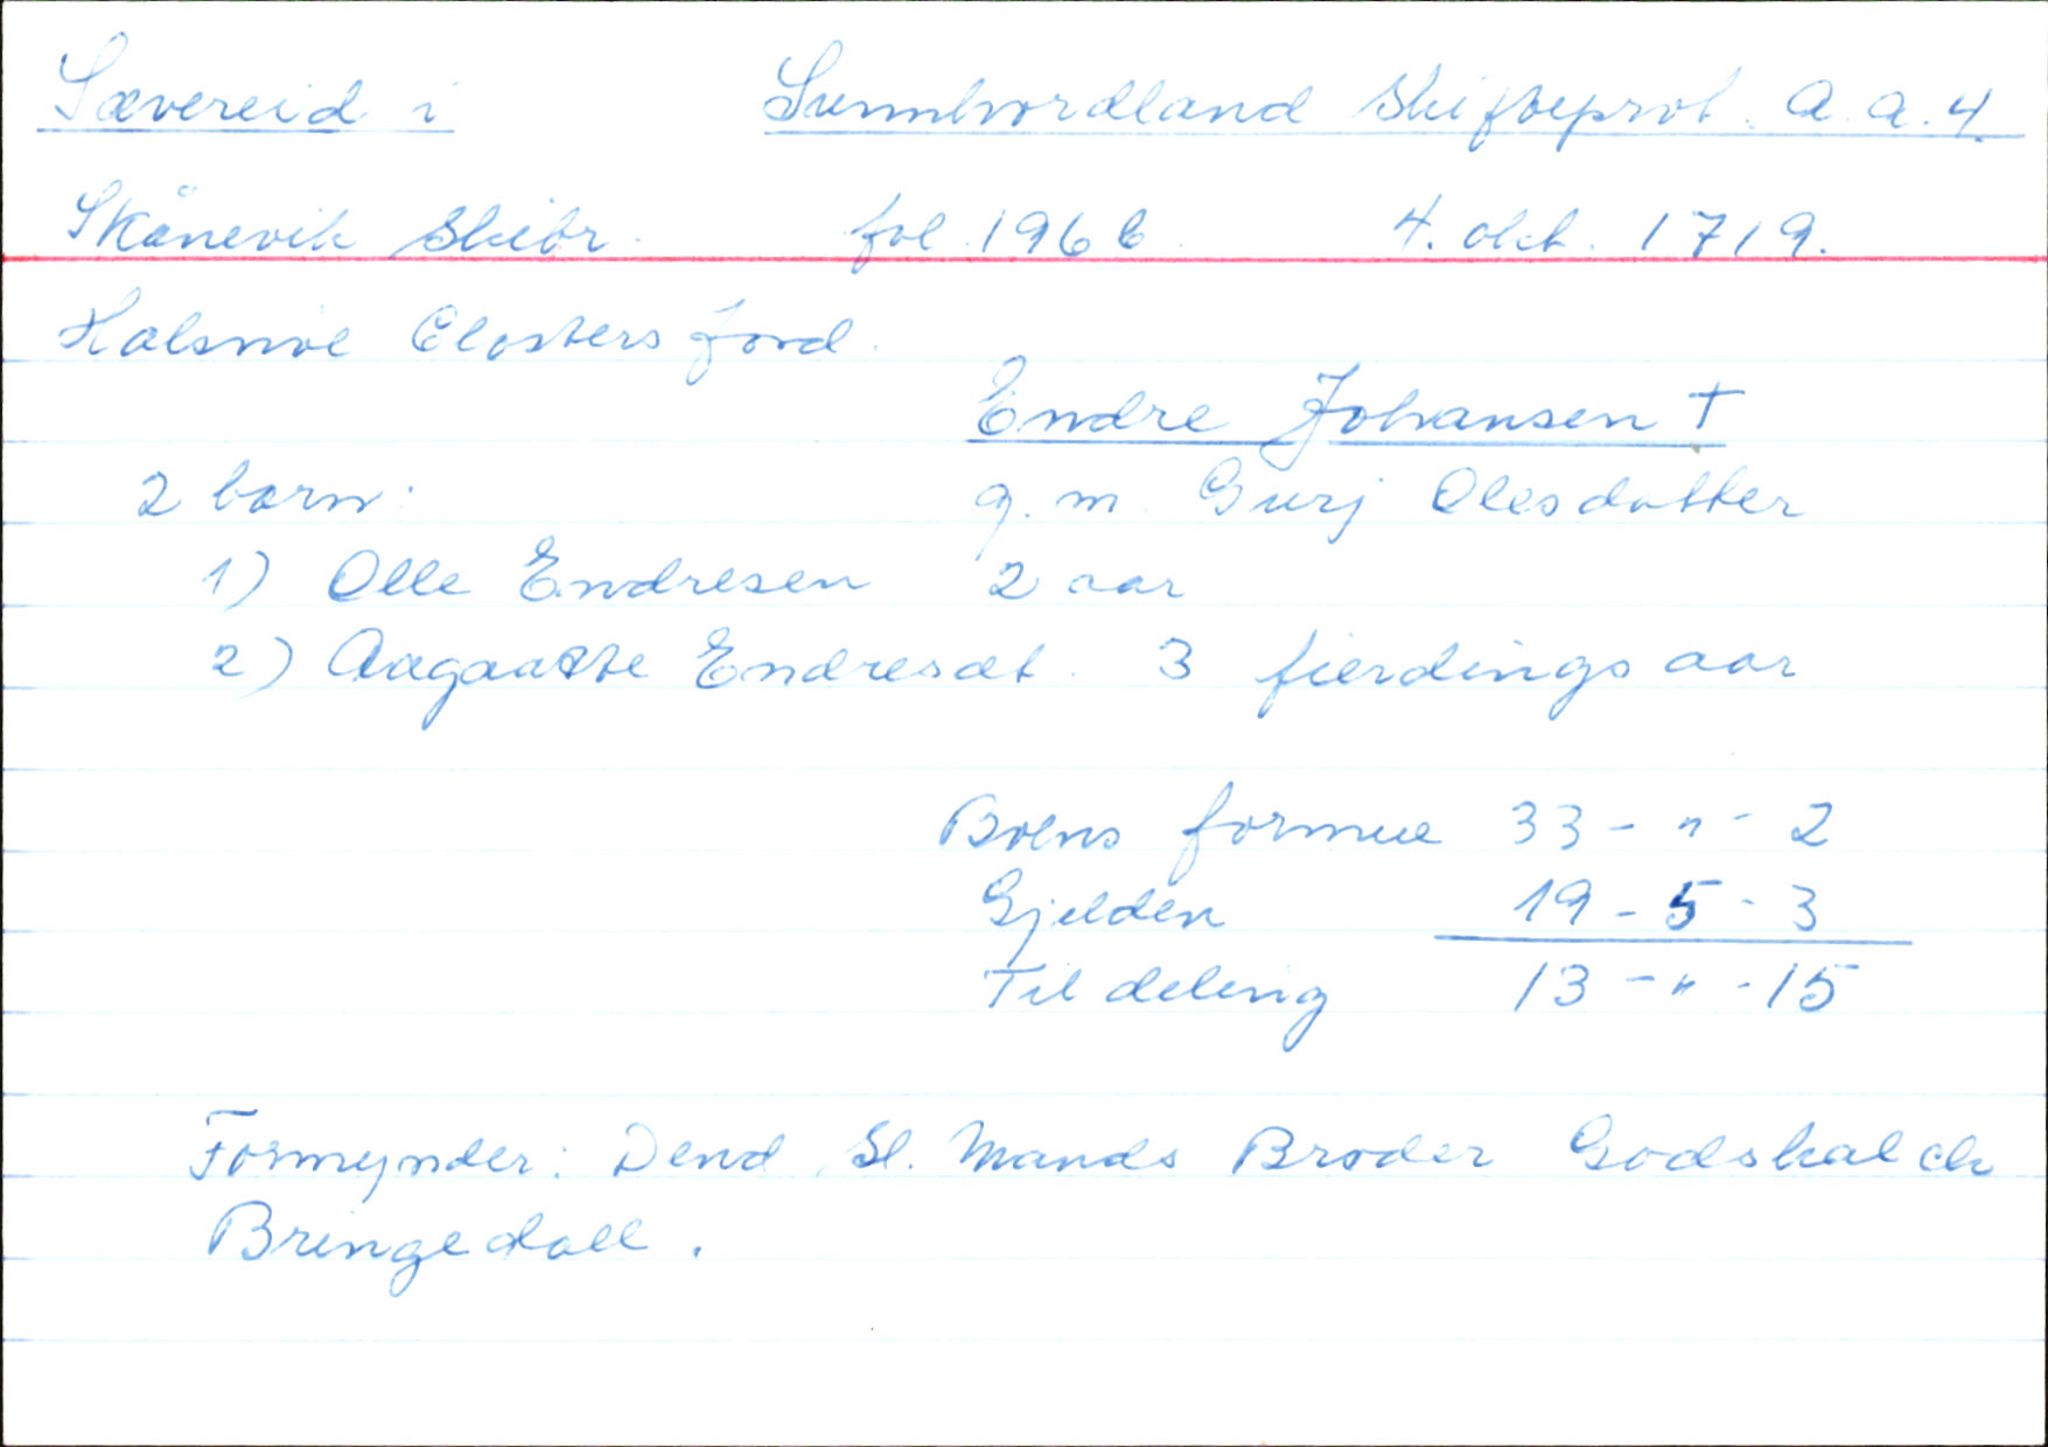 Sævereid i Sunnhordland Skifteprot. A. a. 4.
Skånevik Skibr. fol. 196 b 4. okt. 1719.
Halsnøe Closters Jord.
Endre Johansen †
2 barn: g. m. Gurj Olesdatter
1) Olle Endresen 2 aar
2) Aagaatte Endresdt. 3 fierdings aar
Boens formue 33 - " - 2
Gjelden 19 - 5 - 3
Til deling 13 - " - 15
Formynder: Dend Sl. Mands Broder Godskalch
Bringedall.